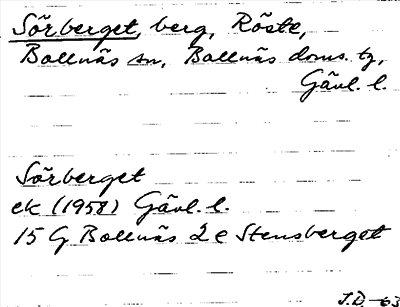 Sörberget, berg, Röste,
Bollnäs sn, Bollnäs doms. tg,
Gävl. l.
Sörberget
ek (1958) Gävl. l.
15 G Bollnäs 2 c Stensberget
J.D. -63